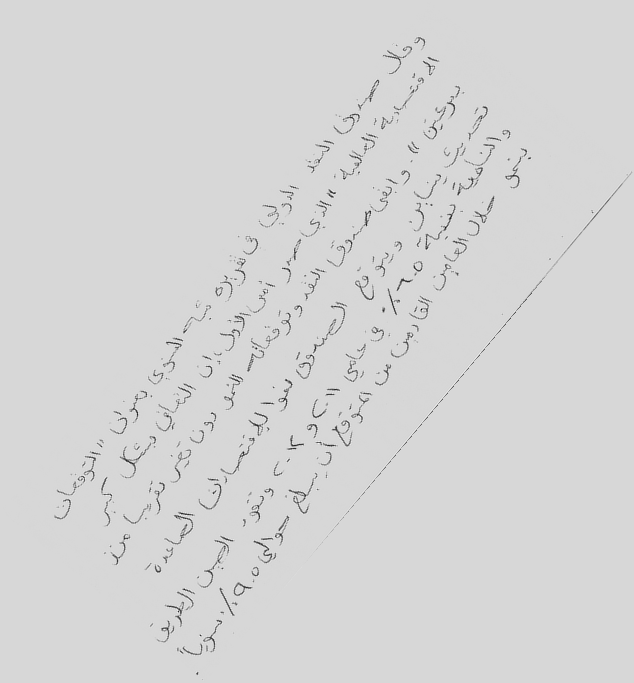 وقال صندوق النقد الدولي في تقريره شبه السنوي بعنوان "التوقعات
الاقتصادية العالمية" الذي صدر أمس الأول، إن التعافي بشكل كبير
بسرعتين". وأبقى صندوق النقد وتوقعاته للنمو دون تغيير تقريبا منذ
تحديث يناير. ويتوقع الصندوق نموا للاقتصادات الصاعدة
والنامية بنسبة ٦.٥٪ في عامي ٢٠١١ و ٢٠١٢. وتقود الصين الطريق
بنمو خلال العامين القادمين من المتوقع أن يبلغ حوالي ٩.٥٪ سنوياً.